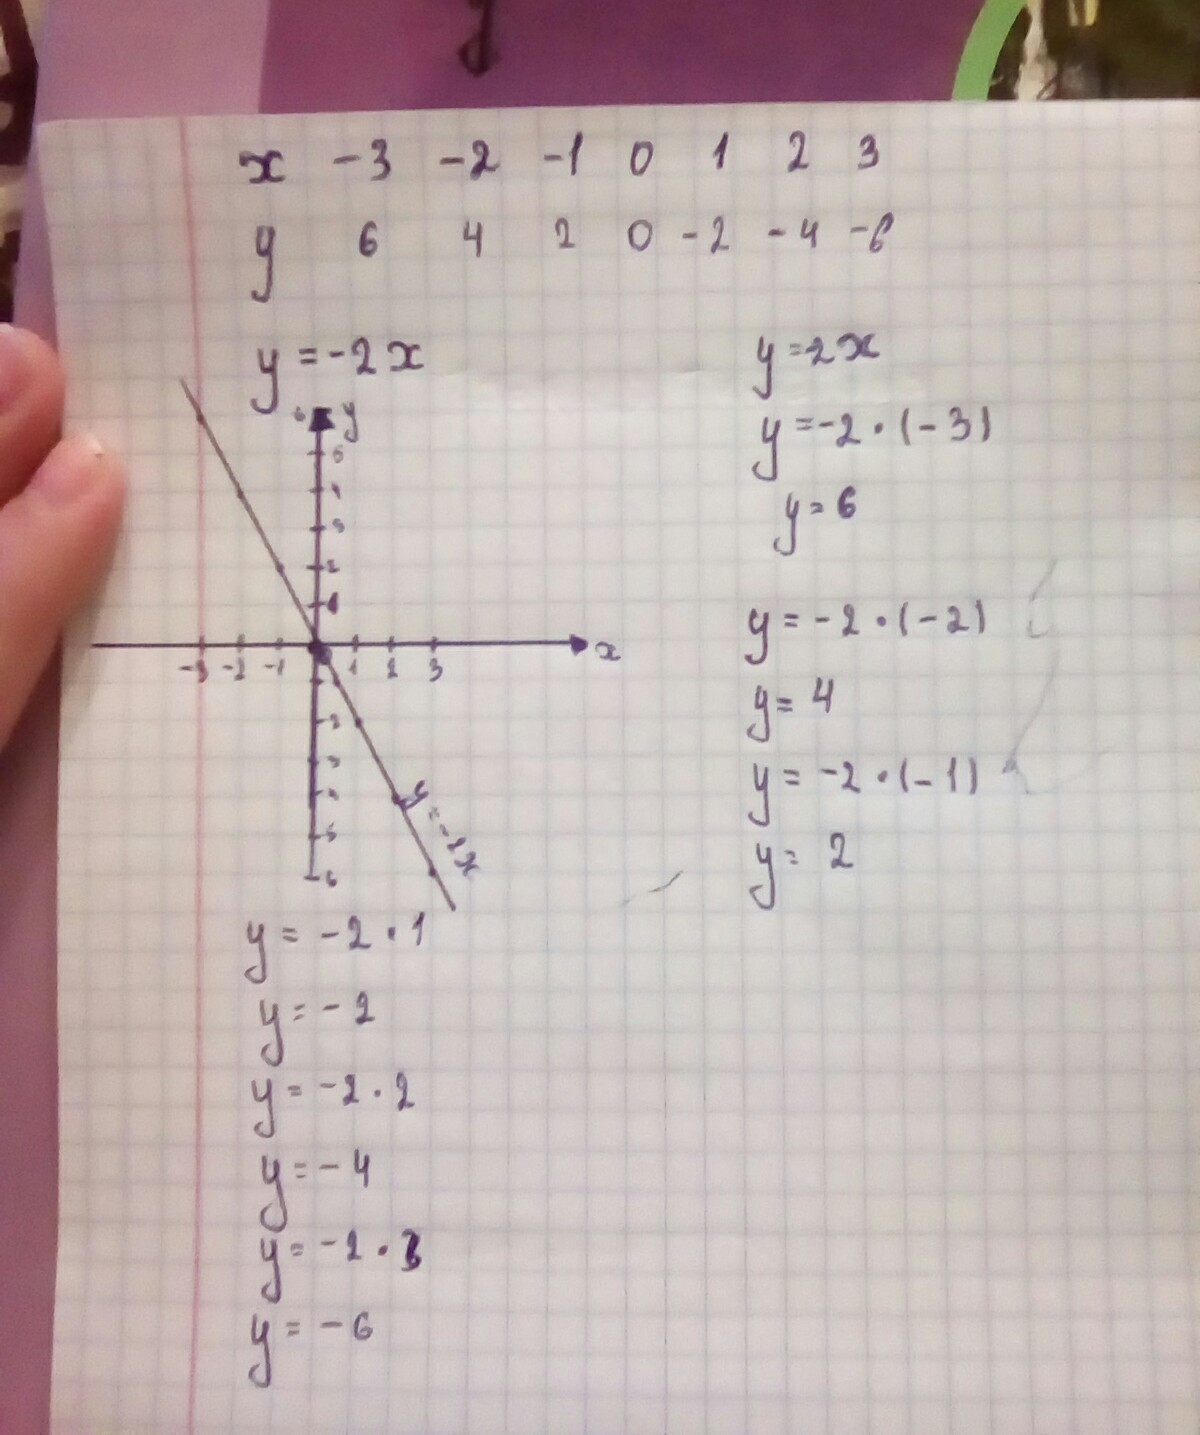 x -3 -2 -1 0 1 2 3
y 6 4 2 0 -2 -4 -6
y = -2x
6 y
5
4
3
2
1
-3 -2 -1 1 2 3 x
2
3
4
5
6
y = -2x
y = -2 · 1
y = -2
y = -2 · 2
y = -4
y = -2 · 3
y = -6
y = 2x
y = -2 · (-3)
y = 6
y = -2 · (-2)
y = 4
y = -2 · (-1)
y = 2